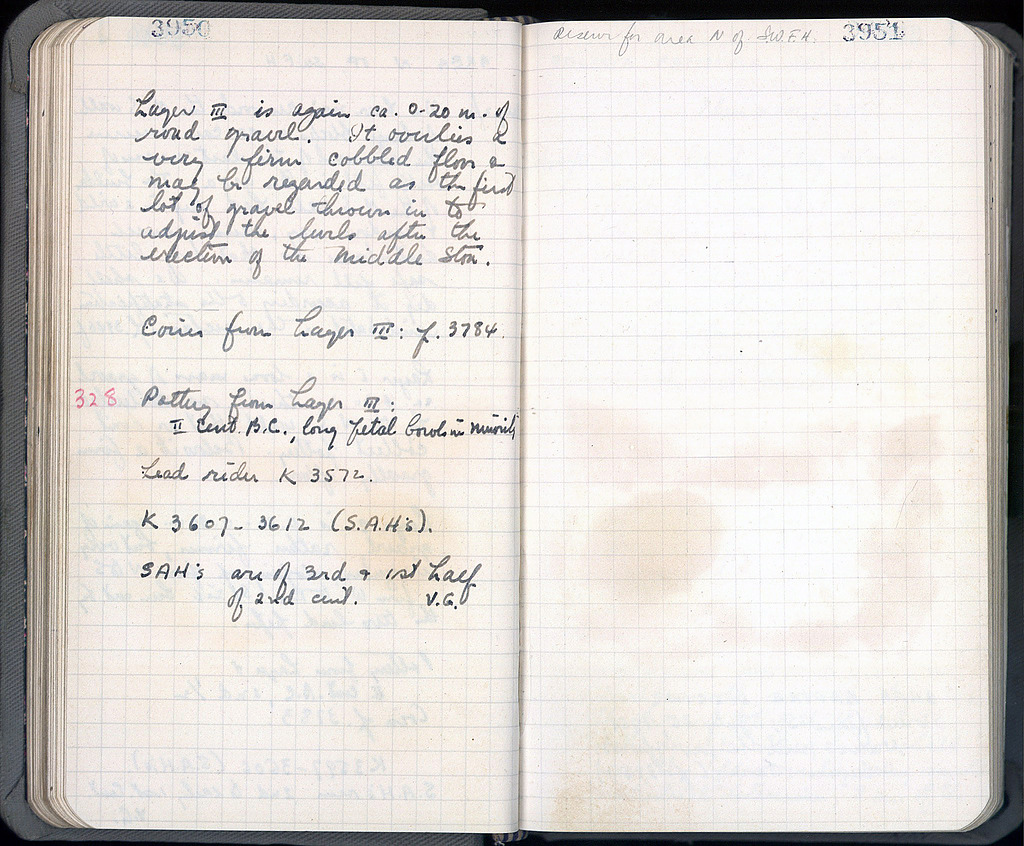 3950
Layer III is again ca. 0.20 m. of
road gravel. It overlies a
very firm cobbled floor &
may be regarded as the first
lot of gravel thrown in to
adjust the levels after the
erection of the Middle Stoa.
Coins from Layer III: p. 3784.
328 Pottery from Layer III:
II cent. B.C., long petal bowls in minority
Lead rider K 3572.
K 3607-3612 (S.A.H's).
SAH's are of 3rd & 1st half
of 2nd cent. V.G.
3951
Reserve for area N of S.W.F.H.